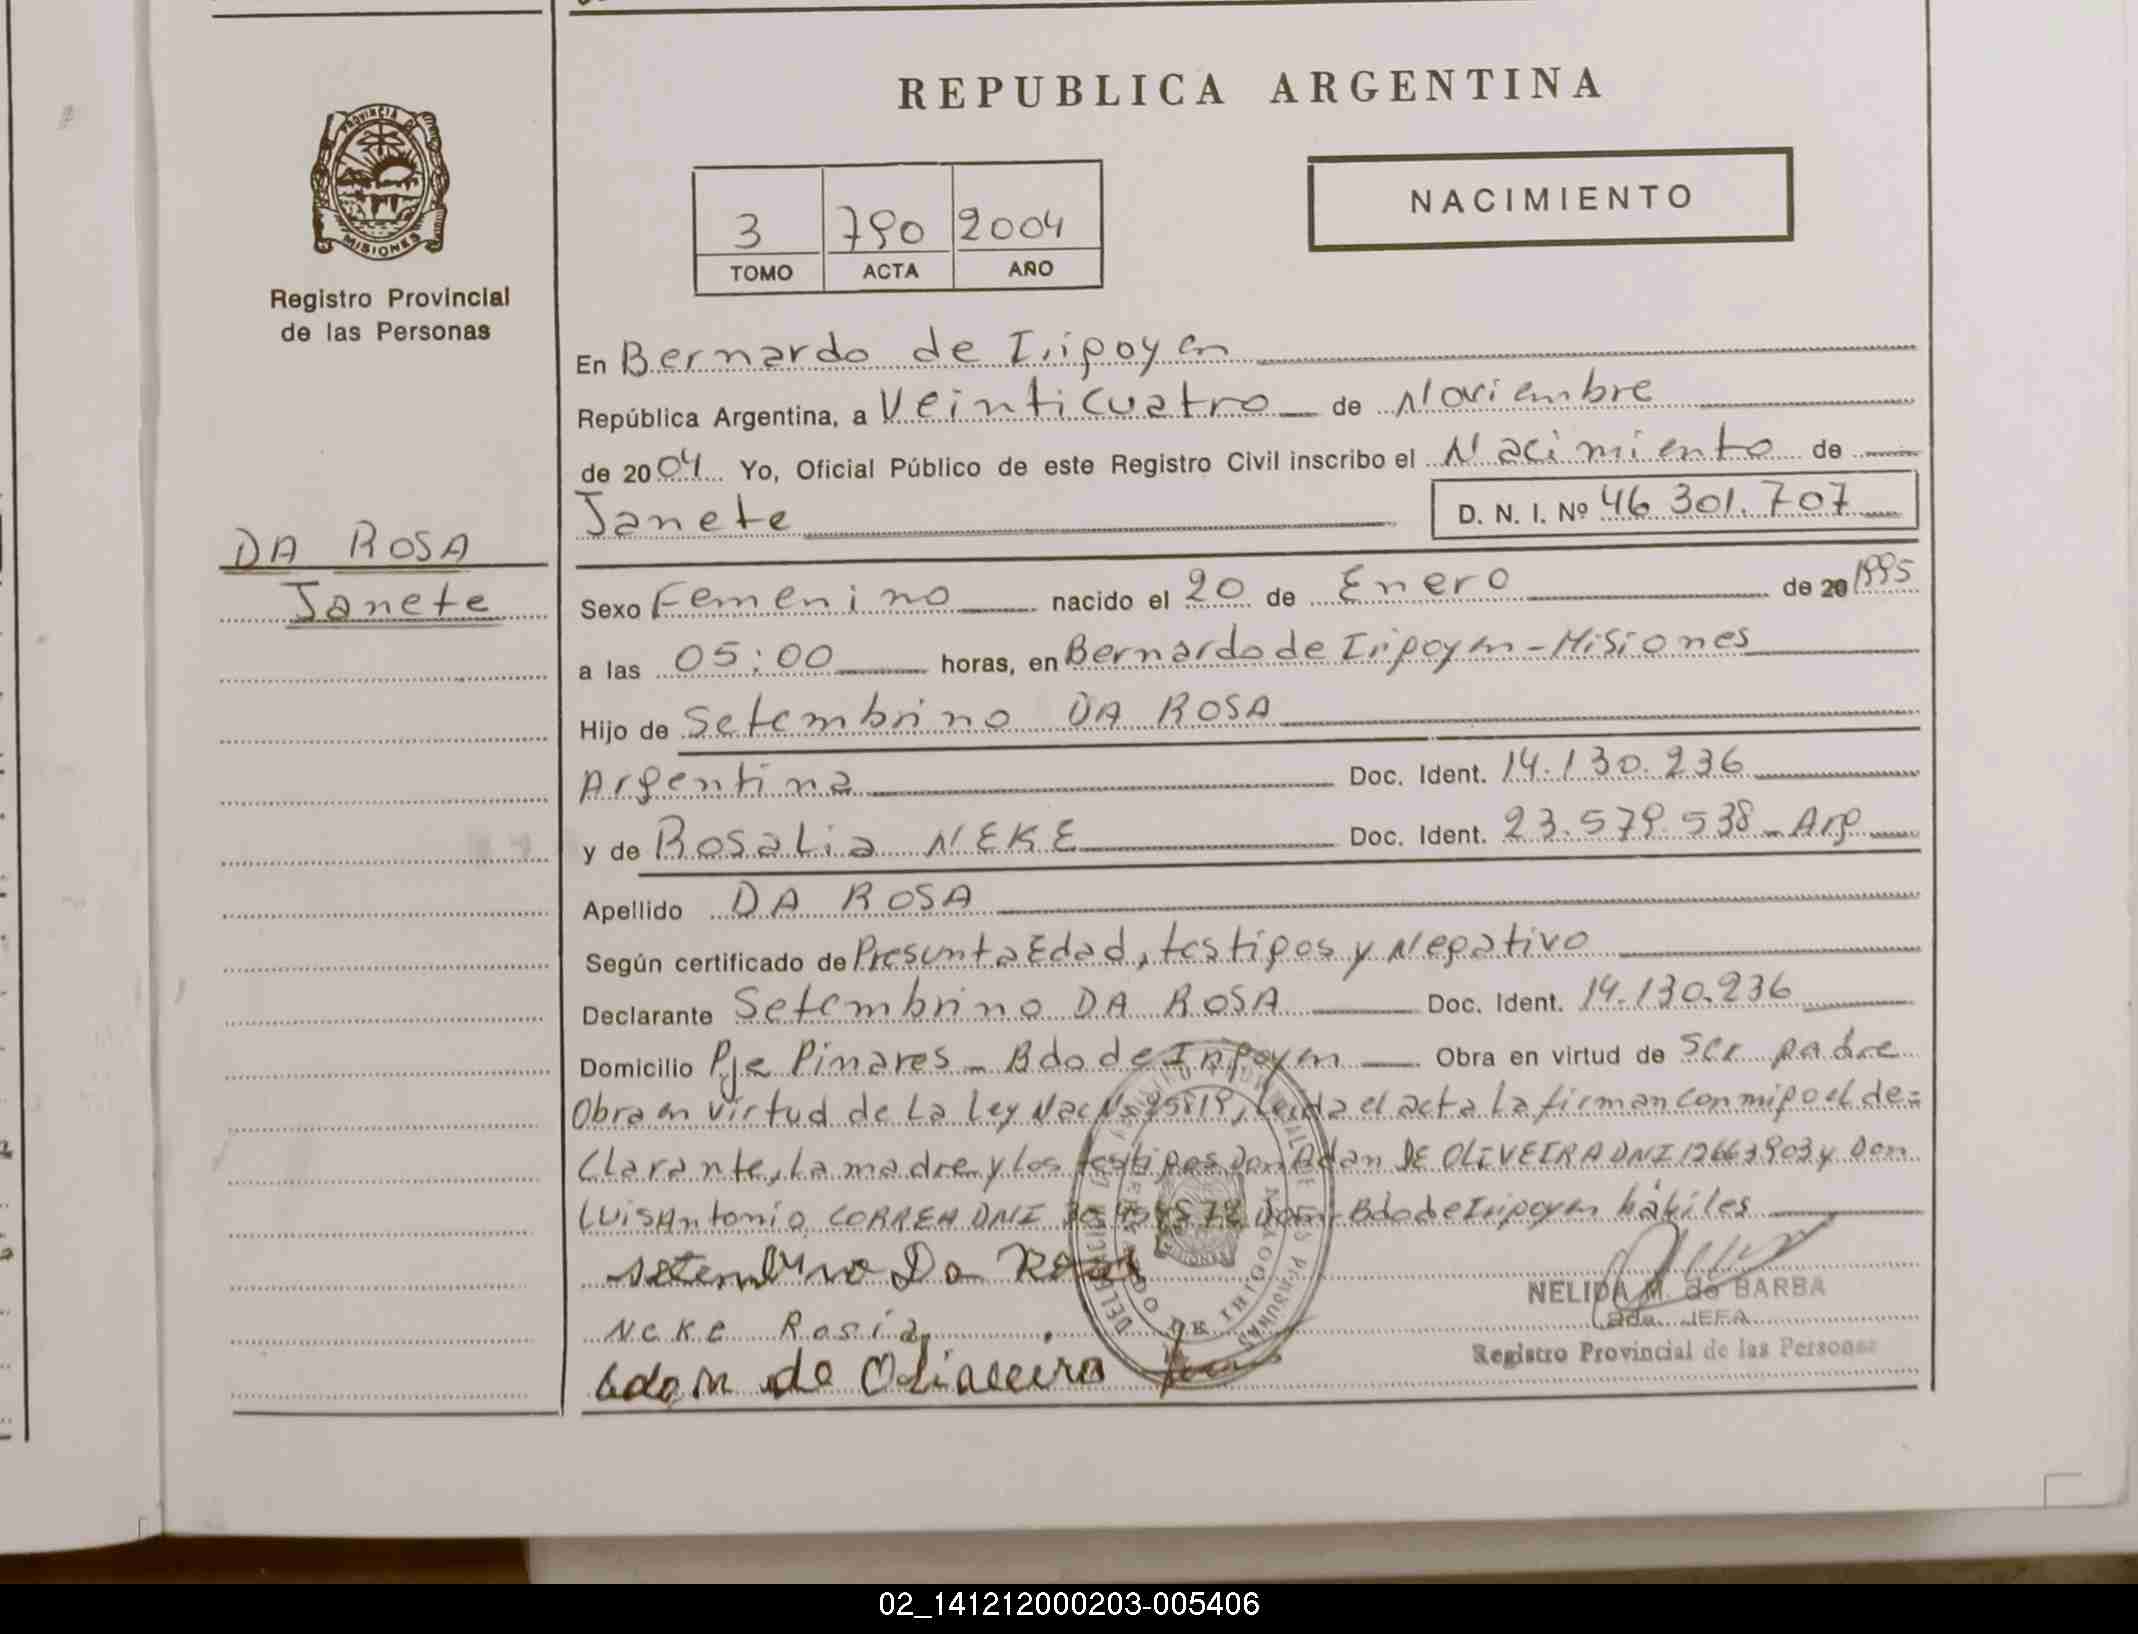 REPUBLICA ARGENTINA
PROVINCIA DE
MISIONES
Registro Provincial
de las Personas
3 790 2004
TOMO ACTA AÑO
NACIMIENTO
DA ROSA
Janete
En Bernardo de Irigoyen
República Argentina, a Veinticuatro de Noviembre
de 2004 Yo, Oficial Público de este Registro Civil inscribo el Nacimiento de
Janete D. N. I. Nº 46.301.707
Sexo Femenino nacido el 20 de Enero de 20 1995
a las 05:00 horas, en Bernardo de Irigoyen - Misiones
Hijo de Setembrino DA ROSA
Argentina Doc. Ident. 14.130.236
y de Rosalia NEKE Doc. Ident. 23.579.538 - Arg
Apellido DA ROSA
Según certificado de Presunta Edad, testigos y Negativo
Declarante Setembrino DA ROSA Doc. Ident. 14.130.236
Domicilio Pje Pinares - Bdo de Irigoyen Obra en virtud de Ser padre
Obra en virtud de La Ley Nac Nº 25819, Leida el acta La firman conmigo el de=
clarante, La madre y Los testigos Don Adan DE OLIVEIRA DNI 12663903 y Don
Luis Antonio CORREA DNI Dom- Bdo de Irigoyen hábiles
setembrino Da Rosa
Neke Rosia
adam de
NELIDA M. de BARBA
JEFA
Registro Provincial de las Personas
02_141212000203-005406